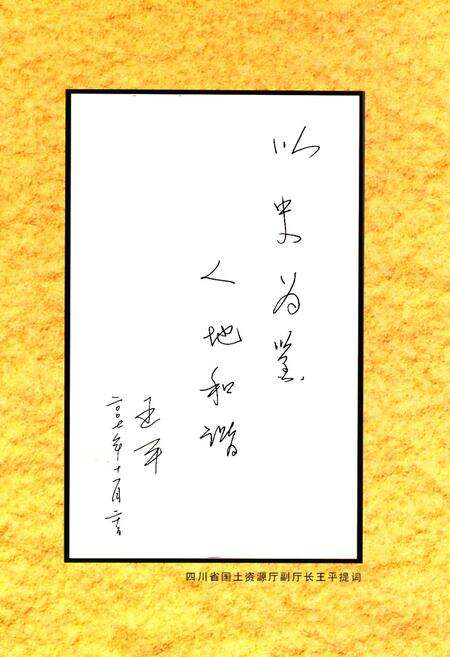 以史为鉴
人地和谐
王平
二00七年十一月二十六日
四川省国土资源厅副厅长王平提词